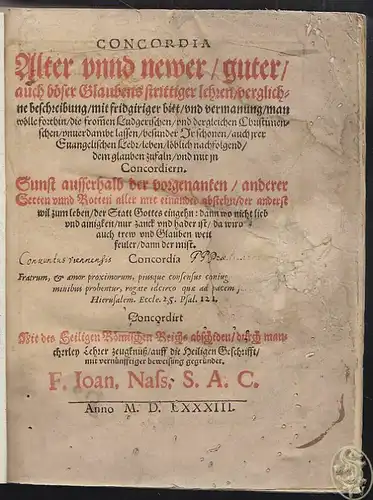 CONCORDIA
Alter vnnd newer / guter /
auch böser Glaubens strittiger lehren / verglich-
ne beschreibung / mit fridgiriger bitt / vnd vermanung / man
wölle forthin / die frommen Ludgerischen / vnd dergleichen Christianen-
schen / vnuerdambt lassen / besunder Ir schonen / auch jrer
Euangelischen Lehr / leben / löblich nachfolgend /
dem glauben zufaln / vnd mit jn
Concordiern.
Sunst ausserhalb der vorgenanten / anderer
Secten vnnd Rotten aller mit einander abstehn / der anderst
wil zum leben / der Statt Gottes eingehn: dann wo nicht lieb
vnd ainigken / nur zanck vnd hader ist / da wird
auch trew vnd Glauben weit
feuler / dann der mist.
Conventus viennensis Concordia
Fratrum, & amor proximorum, piusque consensus coniug
minibus probentur, rogate idcirco quæ ad pacem,
Hierusalem. Eccle. 25. Psal. 121.
Concordirt
Mit des Heiligen Römischen Reichs abschiden / durch man-
cherley Lehrer zeugknuß / auff die Heiligen Geschrifft /
mit vernünfftiger beweisung gegründet.
F. Ioan, Nass, S. A. C.
Anno M. D. LXXXIII.